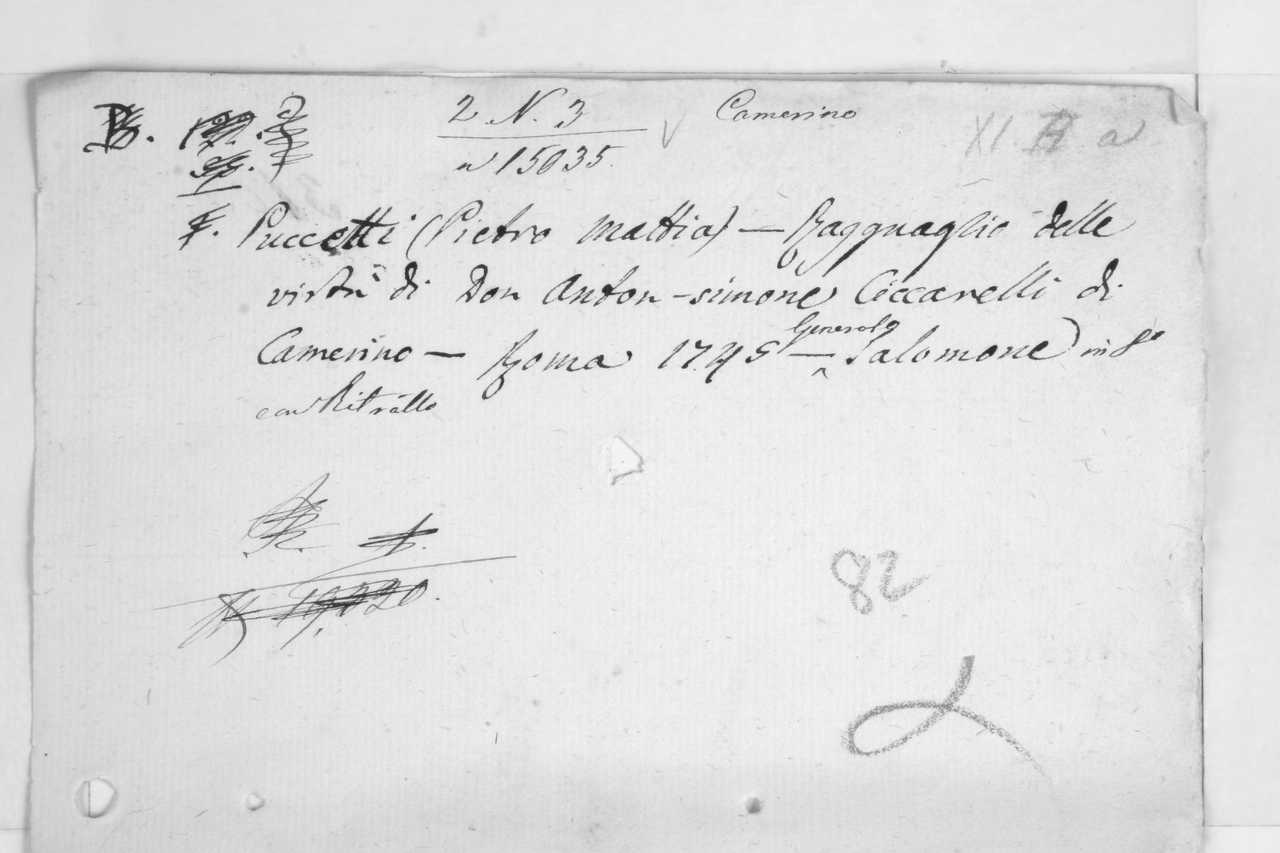 B.
2 N. 3
Camerino
XI. H. a
a 15035.
Puccetti (Pietro Mattia) — Ragguaglio delle
virtù di Don Anton-simone Ciccarelli di
Camerino — Roma 1745 — Generoso Salomone) in 8°
con Ritratto
82